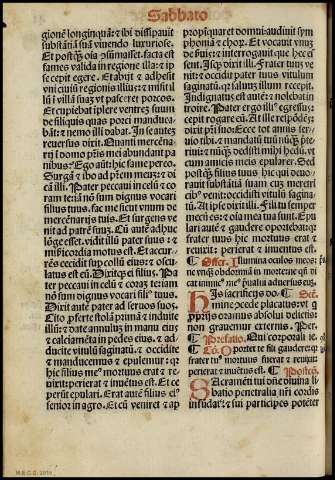 Sabbato
gionē longinquā: ⁊ ibi dissipauit
substātiā suā viuendo luxuriose.
Et postq̄ oīa ↄsūmasset. facta est
fames valida in regione illa: ⁊ ip
se cepit egere. Et abijt ⁊ adhesit
vni ciuiū regionis illius: ⁊ misit il
lū ī villā suā ut pasceret porcos.
Et cupiebat īplere ventrē suum
de siliquis quas porci manduca
bāt: ⁊ nemo illi dabat. In se autē
reuersus dixit. Quanti mercēna
rij ī domo pr̄is mei abundant pa
nibus: Ego aūt hic fame pereo.
Surgā ⁊ ibo ad p̄rem meuȝ: ⁊ di
cā illi. Pater peccaui in celū ⁊ co
ram te: iā nō sum dignus vocari
filius tuus. fac me sicut vnum de
mercēnarijs tuis. Et surgens ve
nit ad patrē suū. Cū autē adhuc
lōge esset. vidit illū pater suus: ⁊
misericordia motus est. Et accur
rēs cecidit sup collū eius: ⁊ oscu
latus est eū. Dixitqȝ ei filius. Pa
ter peccaui in celū ⁊ corāȝ te: iam
nō sum dignus vocari filiꝰ tuus.
Dixit autē pater ad seruos suos.
Cito ꝓferte stolā primā ⁊ induite
illū: ⁊ date annulūȝ in manu eius
⁊ calciamēta in pedes eius. ⁊ ad
ducite vitulū saginatū. ⁊ occidite
⁊ manducemus ⁊ epulemur: qꝛ
hic filius meꝰ mortuus erat ⁊ re
uixit: perierat ⁊ inuētus est. Et ce
perūt epulari. Erat autē filius eiꝰ
senior in agro. Et cū veniret ⁊ ap
propīquaret domui: audiuit sym
phoniā ⁊ chorū. Et vocauit vnuȝ
de suis: ⁊ interrogauit que hec eē
sent. Isqȝ dixit illi. Frater tuus ve
nit: ⁊ occidit pater tuus vitulum
saginatū: qꝛ saluūȝ illum recepit.
Indignatus est autē: ⁊ nolebat in
troire. Pater ergo illiꝰ egressus:
cepit rogare eū. At ille respōdēs:
dixit pr̄i suo: Ecce tot annis ser
uio tibi. ⁊ mandatū tuū nūqȝ p̄te
riui: ⁊ nūqȝ dedisti mihi hedū. vt
cum amicis meis epularer. Sed
postqȝ filius tuus hic qui deuo
rauit substātiā suam cuȝ meretri
cibꝰ venit: occidisti vitulū sagina
tū. At ip̄e dixit illi. Fili tu semper
mecū es: ⁊ oīa mea tua sunt. Epu
lari autē ⁊ gaudere oportebat: qꝛ
frater tuus hic mortuus erat ⁊
reuixit: perierat ⁊ inuentus est.
¶ Offer. Illumina oculos meos:
ne vnqȝ obdormiā in morte: ne qn̄ di
cat inimicꝰ meꝰ: preualui aduersus eū.
His sacrificijs do. ¶ Scē.
mine p̄cede placatus: vt q
ꝓprijs oramus absolui delictis:
non grauemur externis. Per.
¶ Prefatio. Qui corporali ie.
¶ Cō. Oportet te fili gaudere: qꝛ
frater tuꝰ mortuus fuerat ⁊ reuixit:
perierat ⁊ inuētus est. ¶ Postcō.
Sacramēti tui dn̄e diuina li
batio penetralia nr̄i cordis
infūdat: ⁊ sui participes potēter